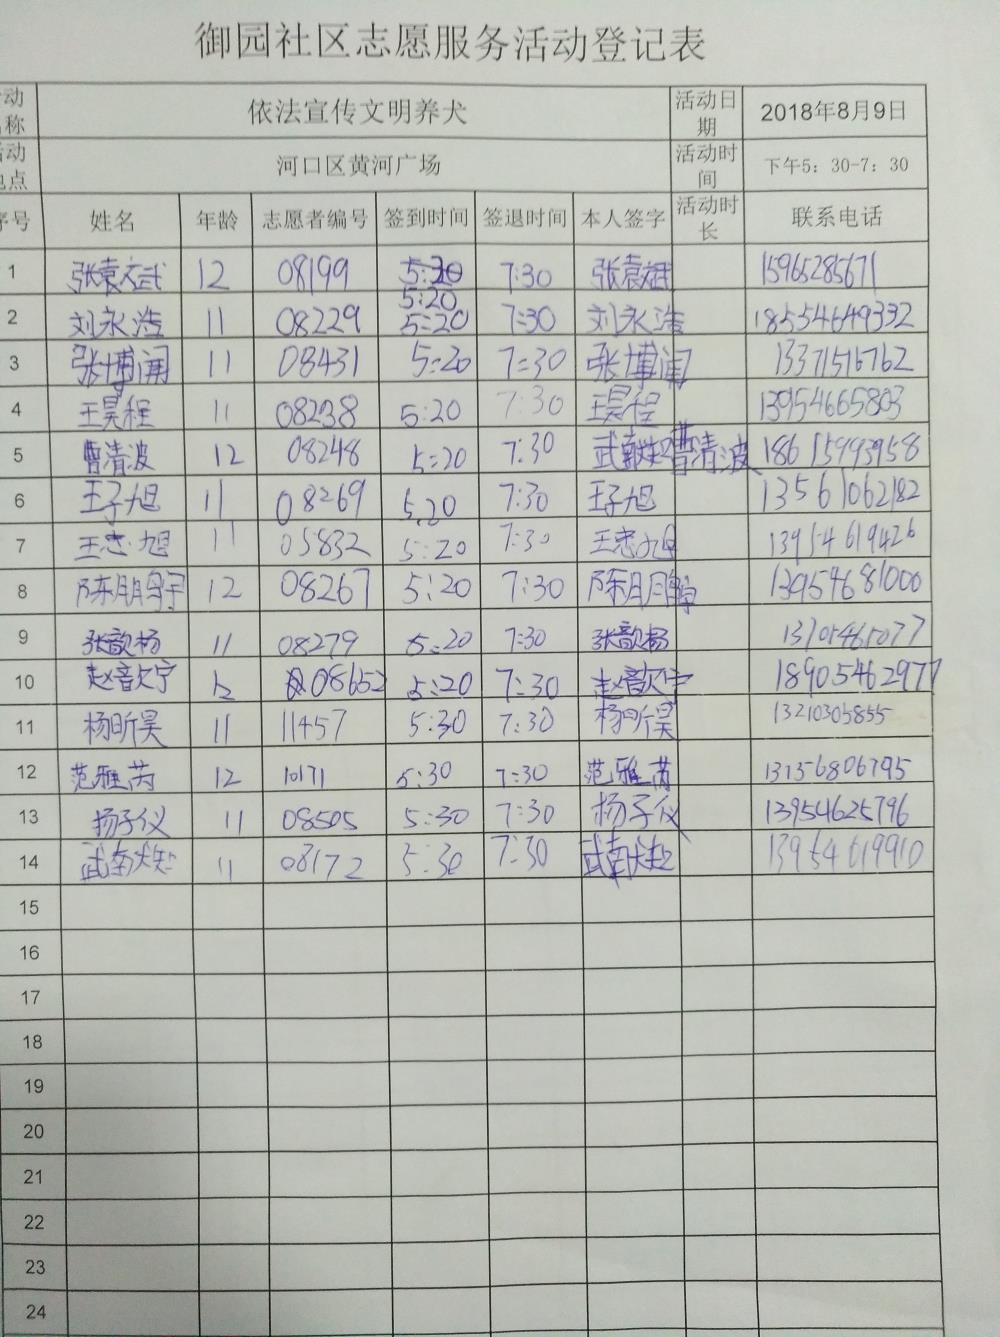 御园社区志愿服务活动登记表
动 称 依法宣传文明养犬 活动日期 2018年8月9日
动 点 河口区黄河广场 活动时间 下午5：30-7：30
序号 姓名 年龄 志愿者编号 签到时间 签退时间 本人签字 活动时长 联系电话
1 张袁斌 12 08199 5:20 7:30 张袁斌 15965285671
2 刘永浩 11 08229 5:20 7:30 刘永浩 18554649332
3 张博闻 11 08431 5:20 7:30 张博闻 13371516762
4 王昊程 11 08238 5:20 7:30 王昊程 13954665803
5 曹清波 12 08248 5:20 7:30 曹清波 18615993958
6 王子旭 11 08269 5.20 7:30 王子旭 13561062182
7 王志旭 11 05832 5:20 7:30 王志旭 13954619426
8 陈鹏宇 12 08267 5:20 7:30 陈鹏宇 13954681000
9 张歆杨 11 08279 5:20 7:30 张歆杨 13705465077
10 赵歆宁 12 08652 5:20 7:30 赵歆宁 18905462977
11 杨昕昊 11 11457 5:30 7:30 杨昕昊 13210305855
12 范雅芮 12 10171 5:30 7:30 范雅芮 13156806795
13 杨子仪 11 08505 5:30 7:30 杨子仪 13954625796
14 武南 11 08172 5:30 7:30 武南 13954619910
15
16
17
18
19
20
21
22
23
24